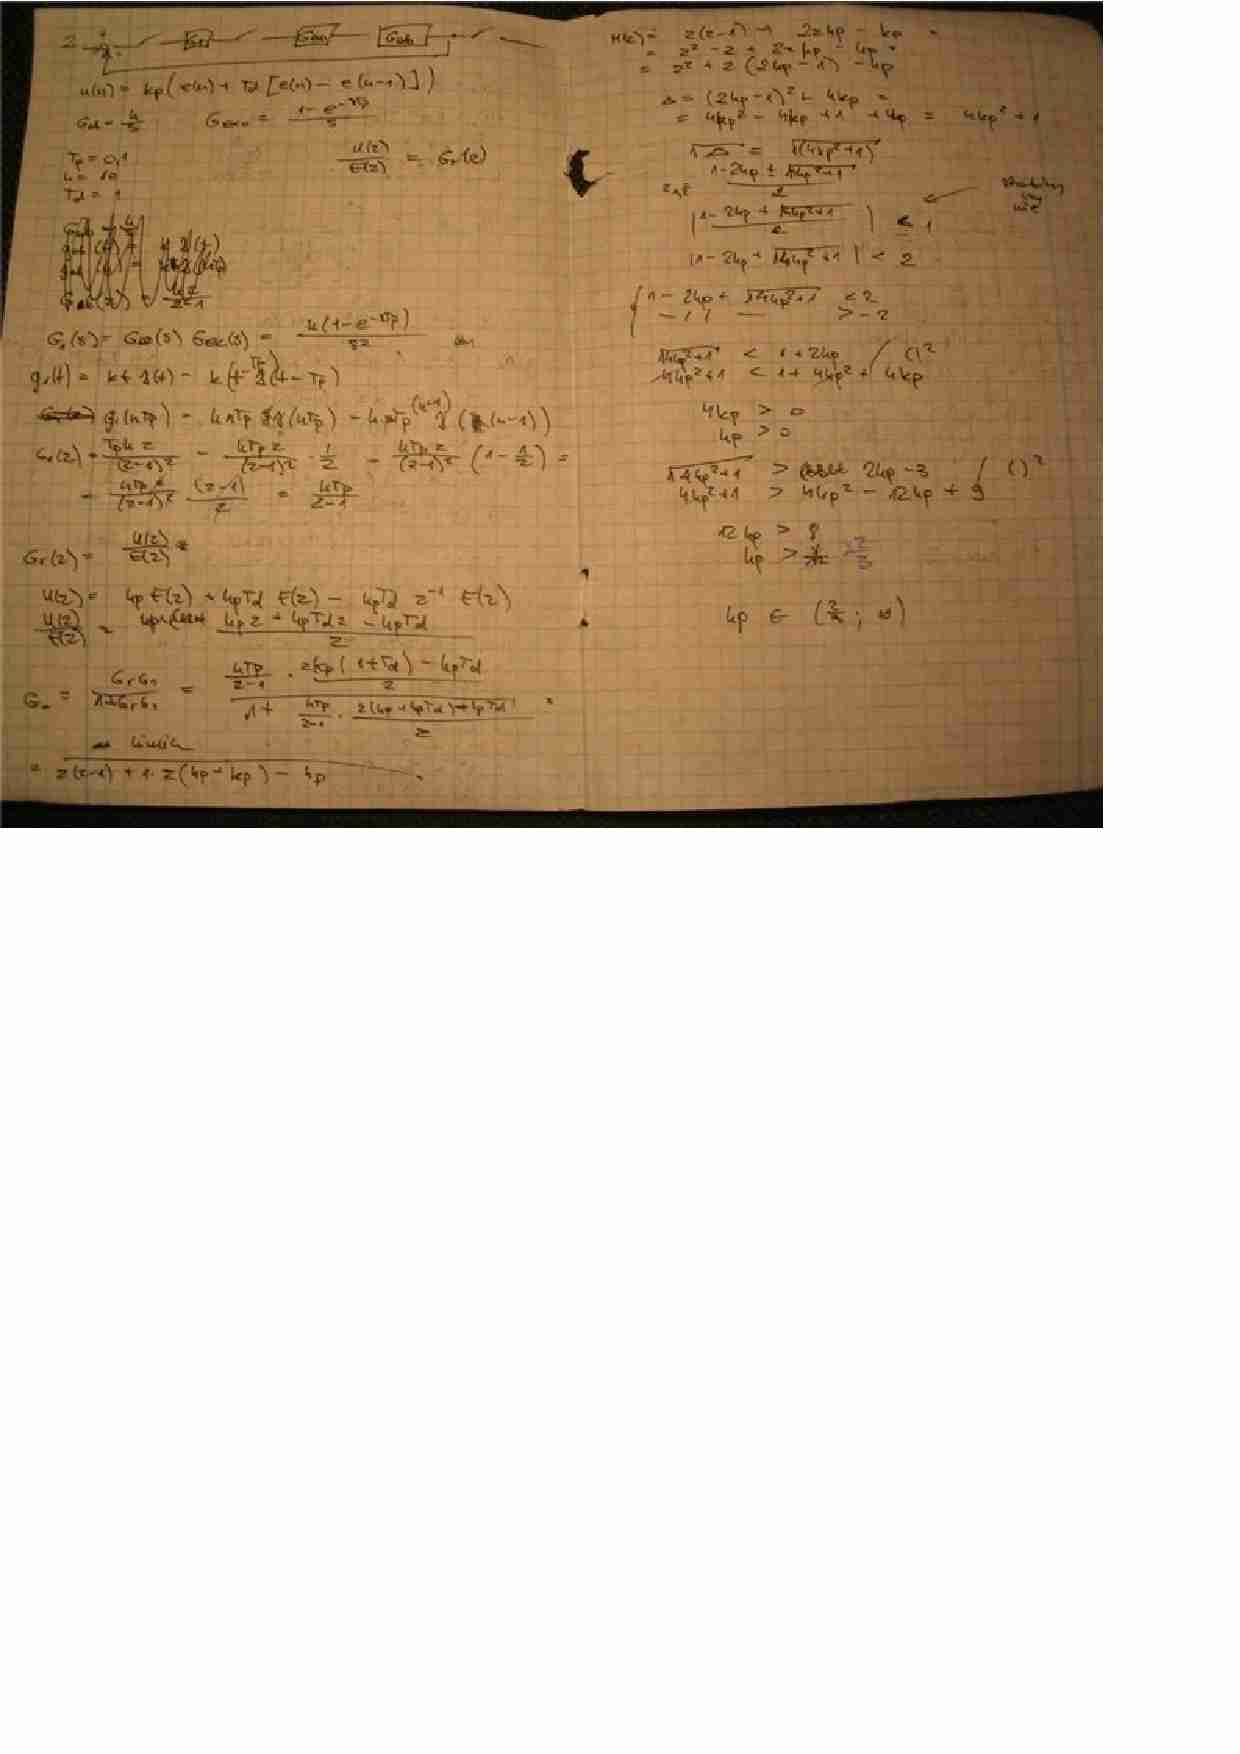 2
u(n) = kp ( e(n) + Td [ e(n) - e(n-1) ] )
Gd = k/s
1 - e^-sTp / s
Tp = 0,1
k = 10
Td = 1
U(z)/E(z) = Gr(z)
G1(s) = = k(1-e^-sTp) / s²
g1(t) = kt 1(t) - k(t-Tp) 1(t-Tp)
g1(nTp) = k nTp 1(nTp) - k Tp (n-1) 1( (n-1))
G1(z) = Tp k z/(z-1)² - kTp z/(z-1)² · 1/z = kTp z/(z-1)² (1 - 1/z) =
= kTp z/(z-1)² (z-1)/z = kTp/z-1
Gr(z) = U(z)/E(z) =
U(z) = kp E(z) + kpTd E(z) - kpTd z^-1 E(z)
U(z)/E(z) = kp z + kpTd z - kpTd / z
G = GrG1/1+GrG1 = kTp/z-1 · zkp(1+Td) - kpTd / z / 1 + kTp/z-1 · z(kp+kpTd)+kpTd / z =
= z(z-1) + 1· z(kp+kp) - kp
M(z) = z(z-1) + 2zkp - kp =
= z² - z + 2zkp - kp =
= z² + z (2kp - 1) - kp
Δ = (2kp-1)² + 4kp =
= 4kp² - 4kp + 1 + 4kp = 4kp² + 1
√Δ = √(4kp²+1)
1-2kp ± √4kp²+1 / 2
| 1-2kp + √4kp²+1 / 2 | < 1
|1-2kp + √4kp²+1 | < 2
{ 1 - 2kp + √4kp²+1 < 2
- // - > -2
√4kp²+1 < 1+2kp / ()²
4kp²+1 < 1 + 4kp² + 4kp
4kp > 0
kp > 0
√4kp²+1 > 2kp-3 / ()²
4kp²+1 > 4kp² - 12kp + 9
12kp > 8
kp > 2/3
kp ∈ (2/3 ; ∞)